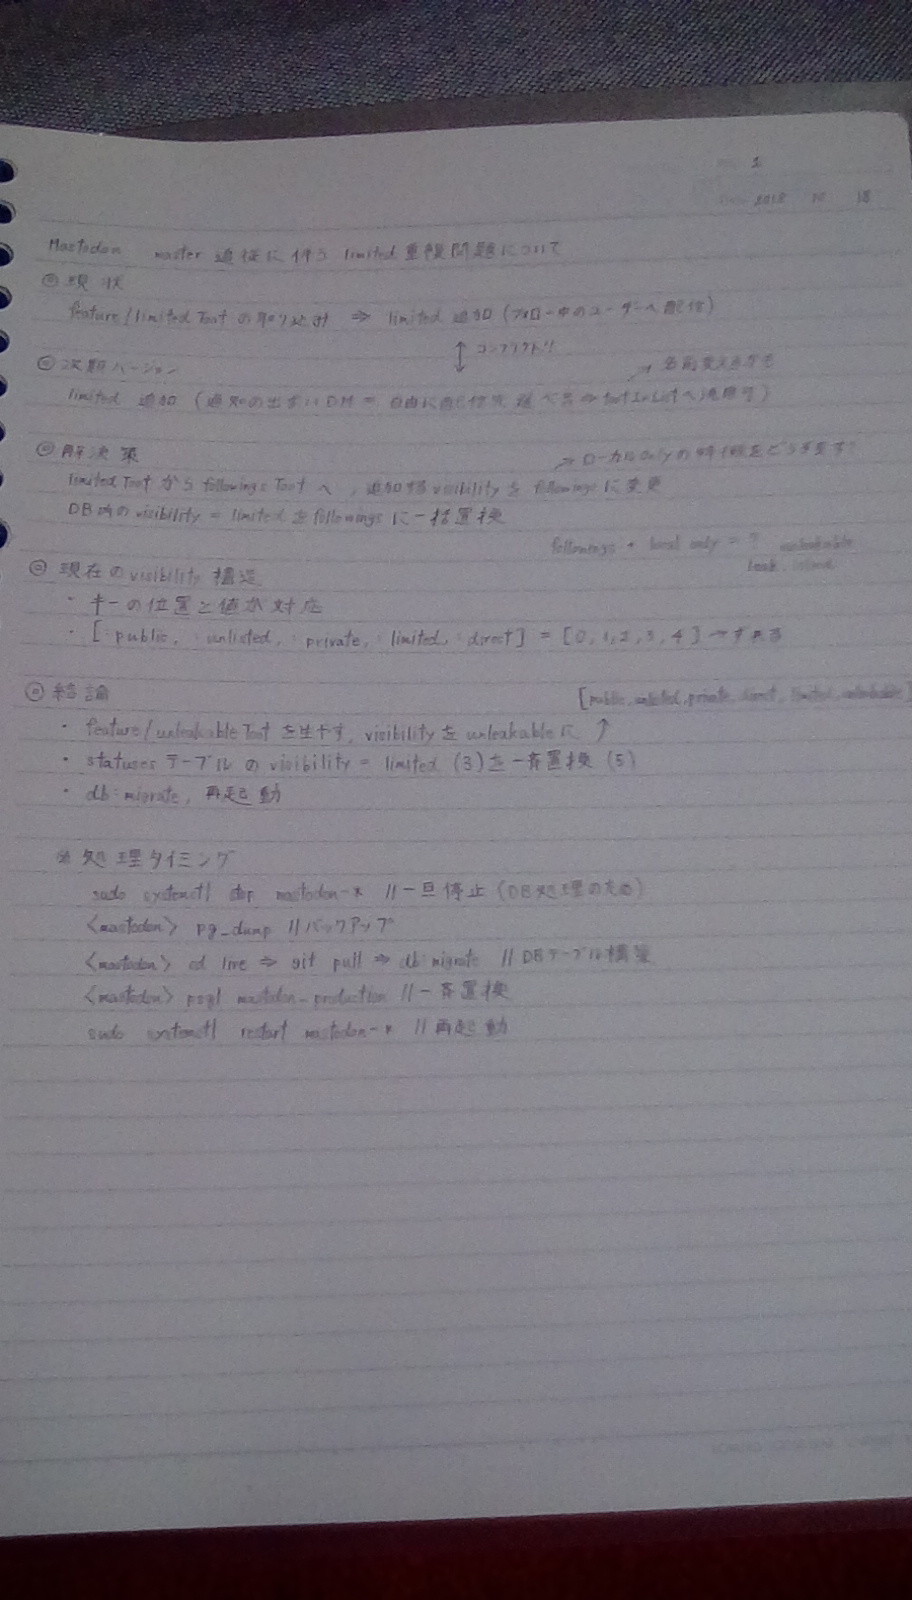 1
2018 10 18
Mastodon master 追従に伴う limited 重複問題について
◎現状
feature/limited Toot の取り込み ⇒ limited 追加 (フォロー中のユーザーへ配信)
↕ コンフリクト!!
◎次期バージョン
→ 名前変えるかも
limited 追加 (通知の出ないDM = 自由に配信先選べる⇒
◎解決策
→ ローカルOnlyの時
limited Toot から followings Toot へ, 追加する visibility を followings に変更
DB内の visibility = limited を followings に一括置換
followings + local only = ? unleakable
◎現在の visibility 構造
・キーの位置と値が対応
・[:public, :unlisted, :private, :limited, :direct] = [0, 1, 2, 3, 4] →ずれる
◎結論
[public, unlisted, private, direct, limited, unleakable]
・feature/unleakable Toot を生やす, visibility を unleakable に ↑
・statuses テーブル の visibility = limited (3)を一斉置換 (5)
・db:migrate, 再起動
※処理タイミング
sudo systemctl stop mastodon-* //一旦停止 (DB処理のため)
<mastodon> pg_dump //バックアップ
<mastodon> cd live ⇒ git pull ⇒ db:migrate //DBテーブル構築
<mastodon> psql mastodon_production //一斉置換
sudo systemctl restart mastodon-* //再起動